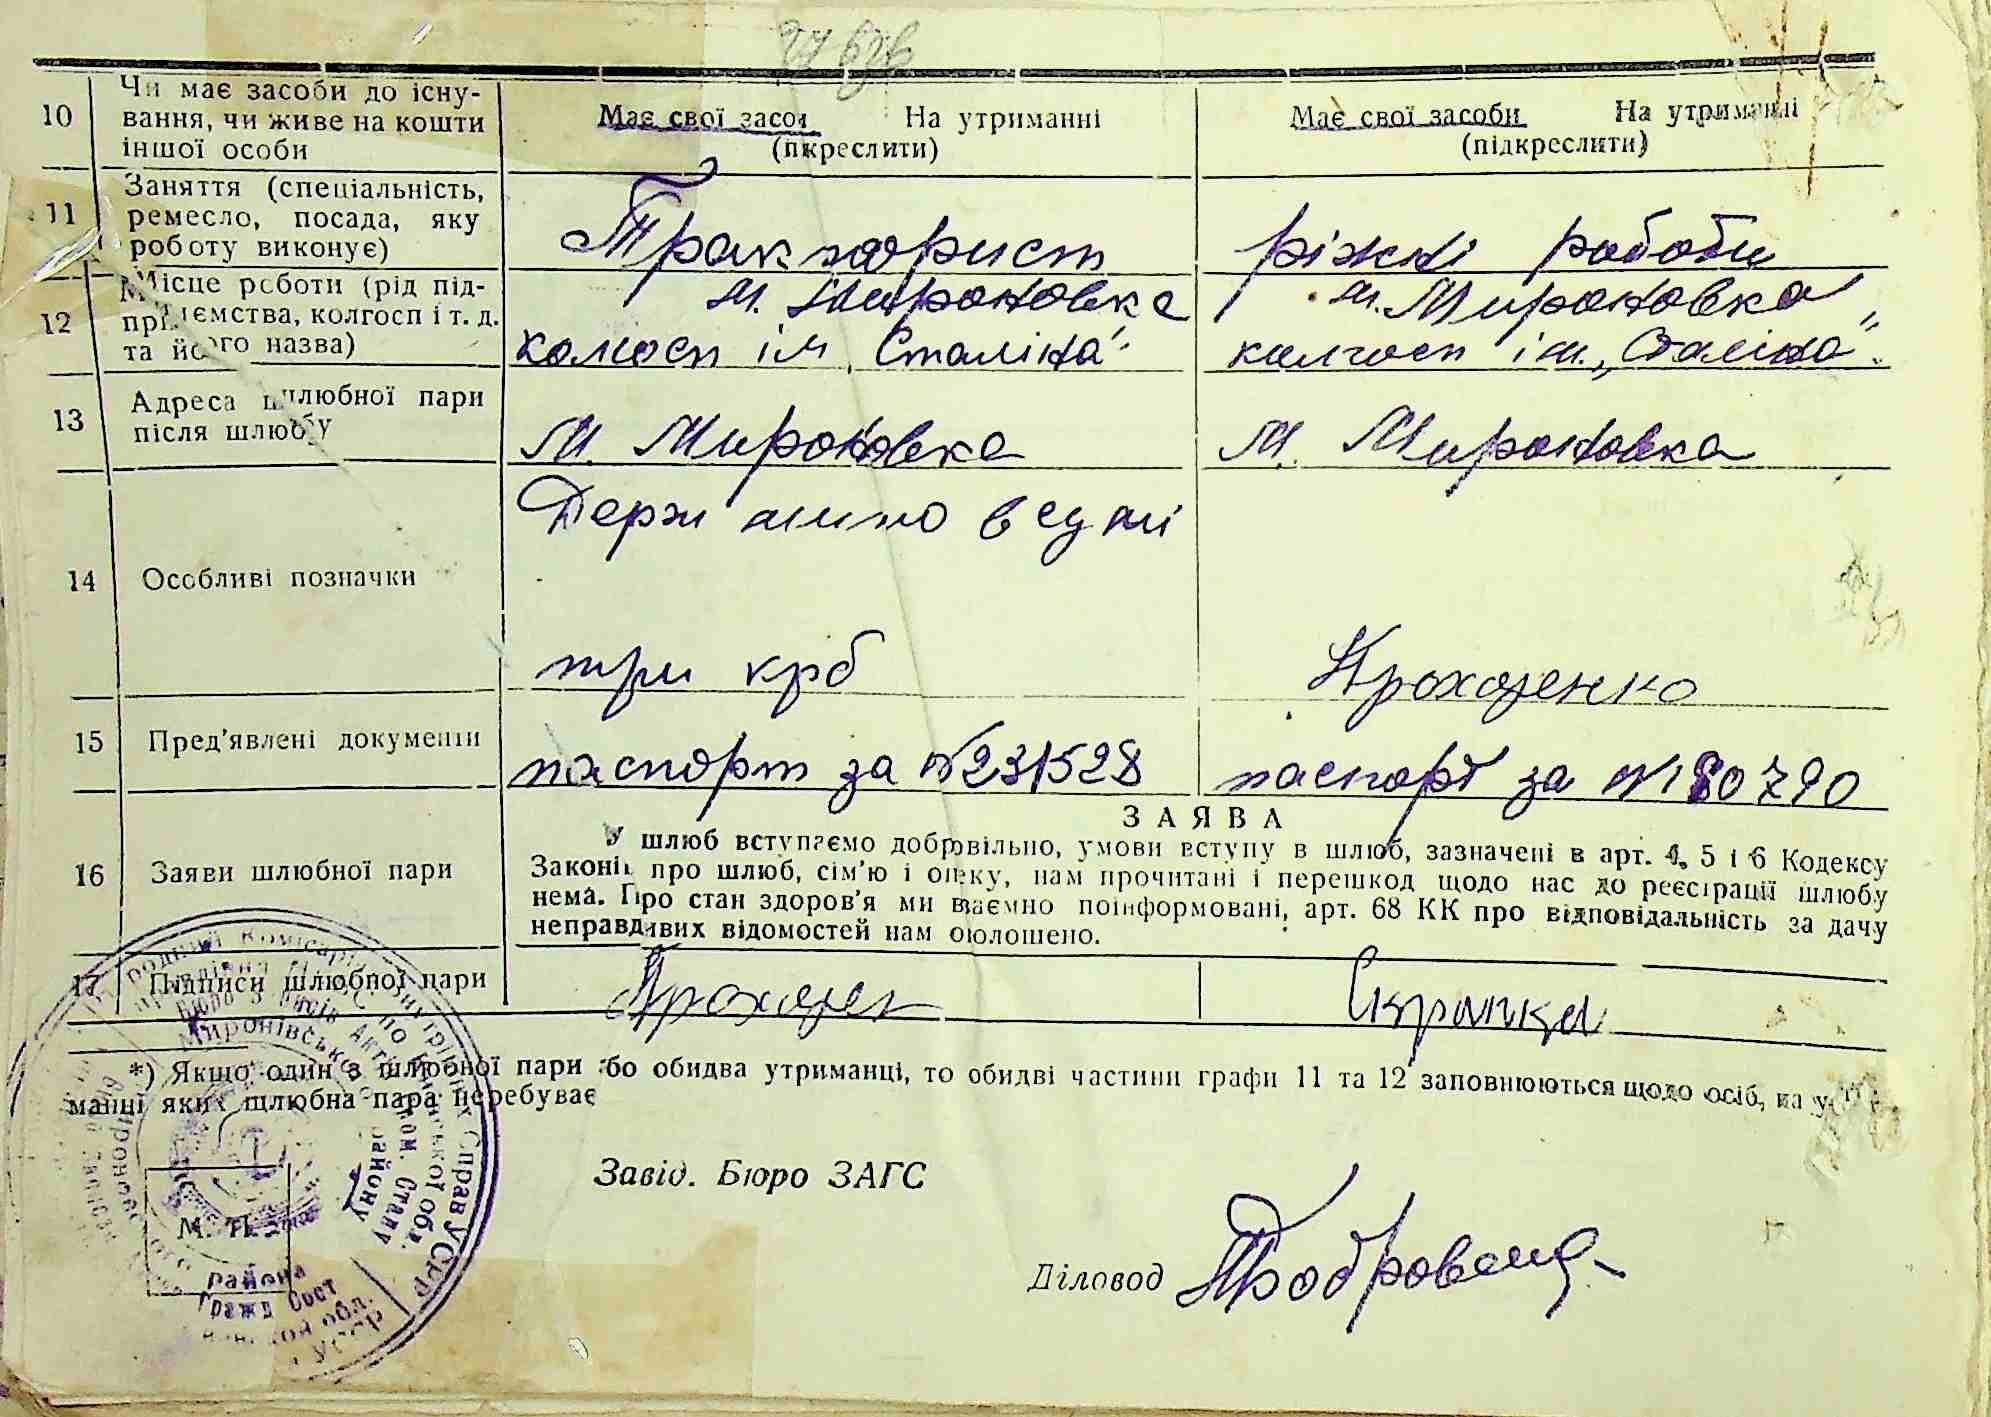 10 Чи має засоби до існу-
вання, чи живе на кошти
іншої особи
Має свої засо На утриманні
(пкреслити)
Має свої засоби На утриманні
(підкреслити)
11 Заняття (спеціальність,
ремесло, посада, яку
роботу виконує)
Тракторист
ріжні роботи
12 Місце роботи (рід під-
приємства, колгосп і т. д.
та його назва)
м. Мироновка
колгосп ім „Сталіна"
м. Мироновка,
колгосп ім. „Сталіна"
13 Адреса шлюбної пари
після шлюбу
М. Мироновка
М. Мироновка
14 Особливі позначки
Держ мито в сумі
три крб
Прохоренко
15 Пред'явлені документи
паспорт за №231528
паспорт за № 180790
16 Заяви шлюбної пари
ЗАЯВА
У шлюб вступаємо добровільно, умови вступу в шлюб, зазначені в арт. 4, 5 і 6 Кодексу
Законів про шлюб, сім'ю і опеку, нам прочитані і перешкод щодо нас до реєстрації шлюбу
нема. Про стан здоров'я ми взаємно поінформовані, арт. 68 КК про відповідальність за дачу
неправдивих відомостей нам оголошено.
17 Підписи шлюбної пари
Прохорен
Скрипка
*) Якщо один з шлюбної пари або обидва утриманці, то обидві частини графи 11 та 12 заповнюються щодо осіб, на ут
манні яких шлюбна пара перебуває
Завід. Бюро ЗАГС
М. П.
Діловод
Народний Комісаріат Внутрішніх Справ УСРР
Управління НКВС по Київській обл.
Бюро Записів Актів Гром. Стану
Миронівського району
района
Гражд Сост
обл.
УССР